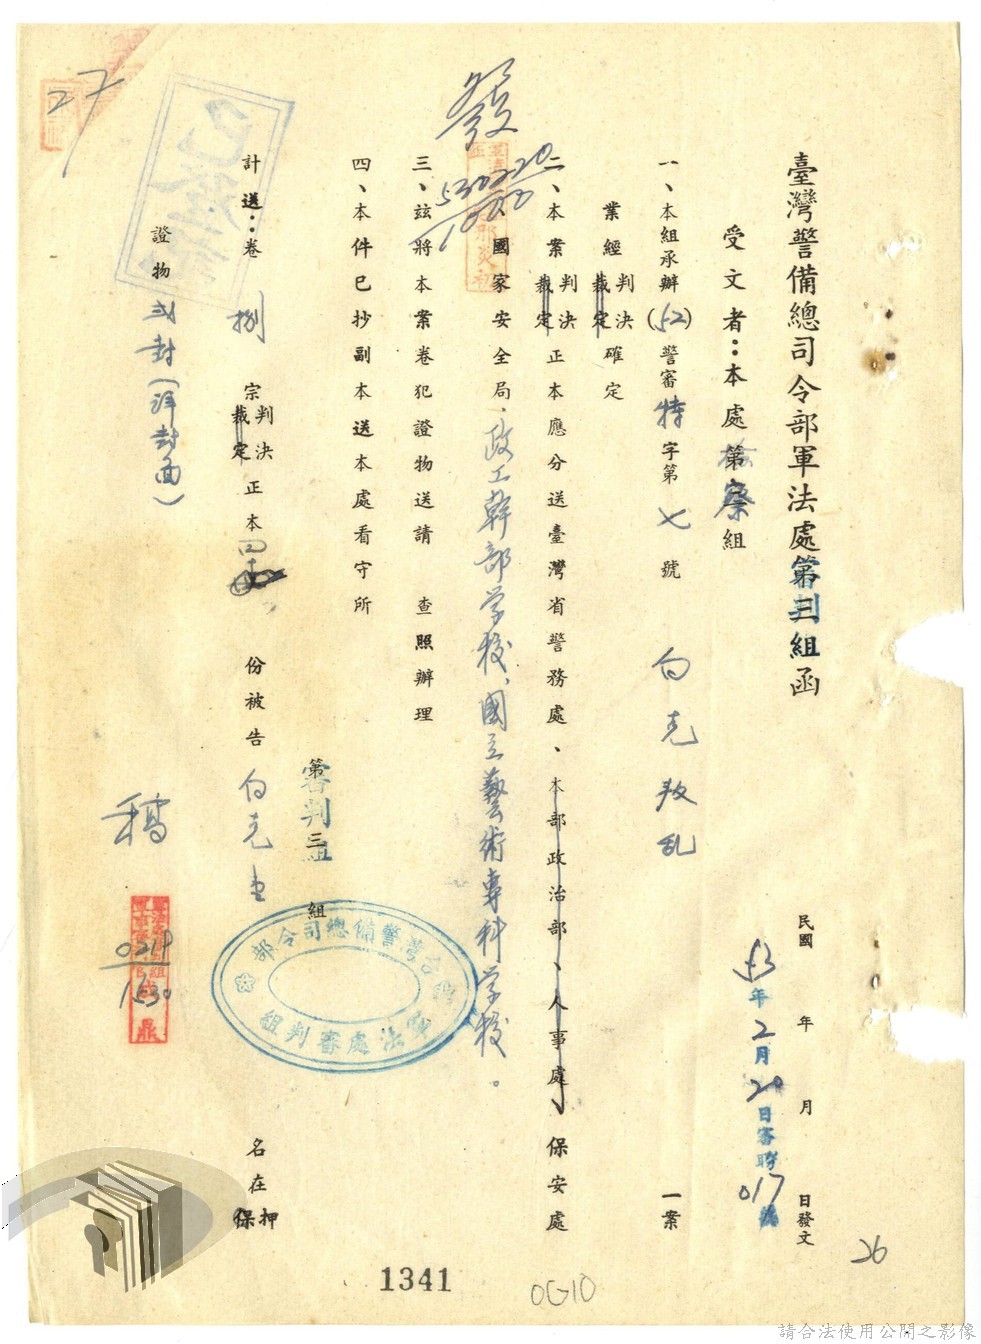 臺灣警備總司令部軍法處審判組函
民國 年 月 日發文
53年2月20日審聆017號
受文者：本處檢察組
一、本組承辦(52)警審特字第七號 白克叛乱 一案
業經判決裁定確定
二、本案判決裁定正本應分送臺灣省警務處、本部政治部、人事處、保安處
國家安全局、政工幹部学校、國立藝術專科学校。
三、玆將本案卷犯證物送請 查照辦理
四、本件已抄副本送本處看守所
第三組
審判組
計送：卷 捌 宗判決裁定正本四 份被告 白克 名在押保
證物 弍封(詳封面)
發
530220
1000
稿
0219
1530
27
26
台灣警備總司令部
軍法處審判組
1341
0G10
請合法使用公開之影像